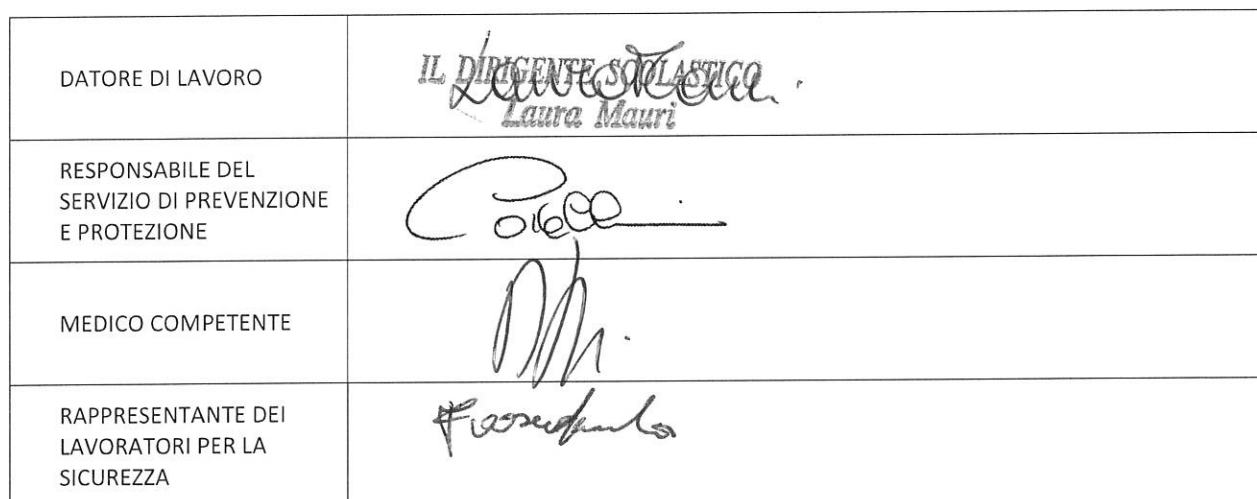 DATORE DI LAVORO
IL DIRIGENTE SCOLASTICO
Laura Mauri
RESPONSABILE DEL
SERVIZIO DI PREVENZIONE
E PROTEZIONE
MEDICO COMPETENTE
RAPPRESENTANTE DEI
LAVORATORI PER LA
SICUREZZA